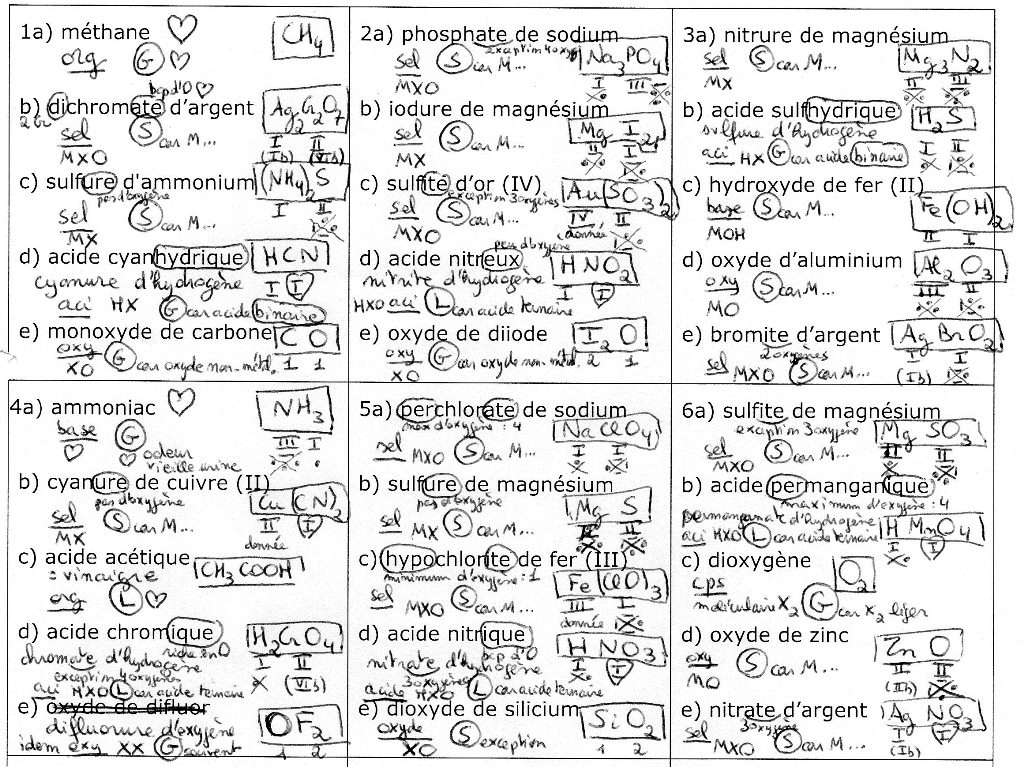 1a) méthane ♡ CH4
org G ♡
b) dichromate d'argent Ag2Cr2O7
2Cr bcp d'O ♡
sel S car M... I II
MXO (Ib) (VIb)
c) sulfure d'ammonium (NH4)2S
pas d'oxygène
sel S car M... I II
MX
d) acide cyanhydrique HCN
cyanure d'hydrogène I I
aci HX G car acide binaire
e) monoxyde de carbone CO
oxy G car oxyde non-mét. 1 1
XO
2a) phosphate de sodium Na3PO4
exception 4oxy
sel S car M... I III
MXO
b) iodure de magnésium Mg I2
sel S car M... II I
MX
c) sulfite d'or (IV) Au(SO3)2
exception 3oxygènes
sel S car M... IV II
MXO donnée
d) acide nitreux HNO2
peu d'oxygène
nitrite d'hydrogène I I
HXO aci L car acide ternaire
e) oxyde de diiode I2O
oxy G car oxyde non-mét. 2 1
XO
3a) nitrure de magnésium Mg3N2
sel S car M... II III
MX
b) acide sulfhydrique H2S
sulfure d'hydrogène I II
aci HX G car acide binaire
c) hydroxyde de fer (II) Fe(OH)2
base S car M... II I
MOH
d) oxyde d'aluminium Al2O3
oxy S car M... III II
MO
e) bromite d'argent AgBrO2
2oxygènes I I
sel MXO S car M... (Ib)
4a) ammoniac ♡ NH3
base G III I
♡ ♡ odeur
vieille urine
b) cyanure de cuivre (II) Cu(CN)2
pas d'oxygène
sel S car M... II I
MX donnée
c) acide acétique CH3COOH
= vinaigre
org L ♡
d) acide chromique H2CrO4
riche en O
chromate d'hydrogène I II
exception 4oxygènes (VIb)
aci HXO L car acide ternaire
e) oxyde de difluor OF2
difluorure d'oxygène
idem oxy XX G souvent 1 2
5a) perchlorate de sodium NaClO4
max d'oxygène : 4
sel MXO S car M... I I
b) sulfure de magnésium Mg S
pas d'oxygène
sel MX S car M... II II
c) hypochlorite de fer (III) Fe(ClO)3
minimum d'oxygène : 1
sel MXO S car M... III I
donnée
d) acide nitrique HNO3
bcp d'O
nitrate d'hydrogène I I
3oxygènes
acide HXO L car acide ternaire
e) dioxyde de silicium SiO2
oxyde S exception 1 2
XO
6a) sulfite de magnésium Mg SO3
exception 3oxygène
sel S car M... II II
MXO
b) acide permanganique
maximum d'oxygène : 4
permanganate d'hydrogène HMnO4
aci HXO L car acide ternaire I I
c) dioxygène O2
cps
moléculaire X2 G car X2 léger
d) oxyde de zinc ZnO
oxy S car M... II II
MO (IIb)
e) nitrate d'argent AgNO3
3oxygène
sel MXO S car M... I I
(Ib)